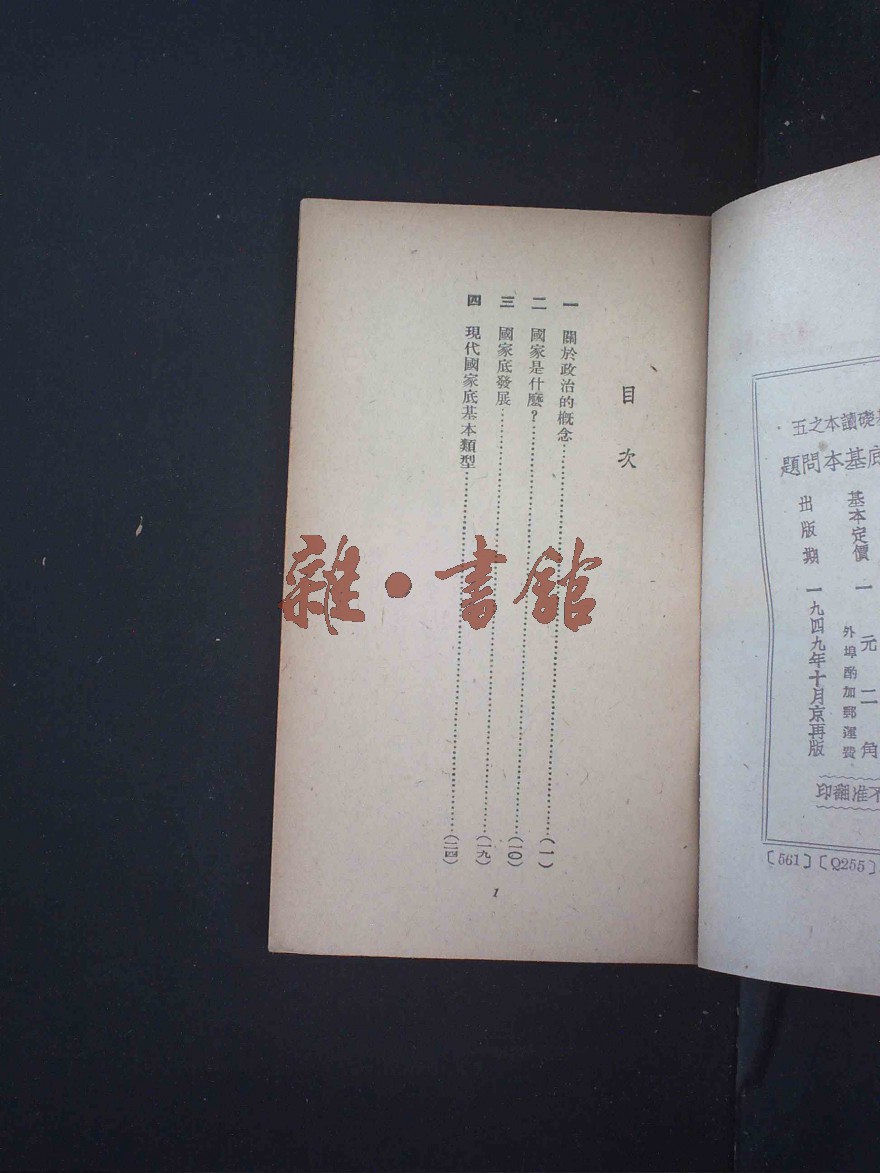 目次
一 關於政治的概念(一)
二 國家是什麽?(一〇)
三 國家底發展(一九)
四 現代國家底基本類型(二四)
1
礎讀本之五
底基本問題
基本定價 一元二角
外埠酌加郵運費
出版期 一九四九年十月京再版
不准翻印
〔561〕〔Q255〕
雜·書館